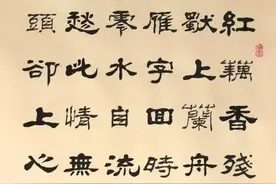 紅藕香殘
上蘭舟
雁字回時
零水自流
愁此情無
頭卻上心